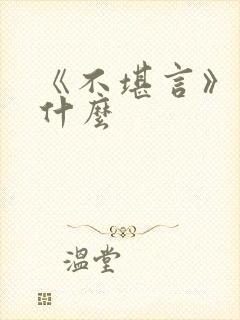 《不堪言》
什麼
溫堂